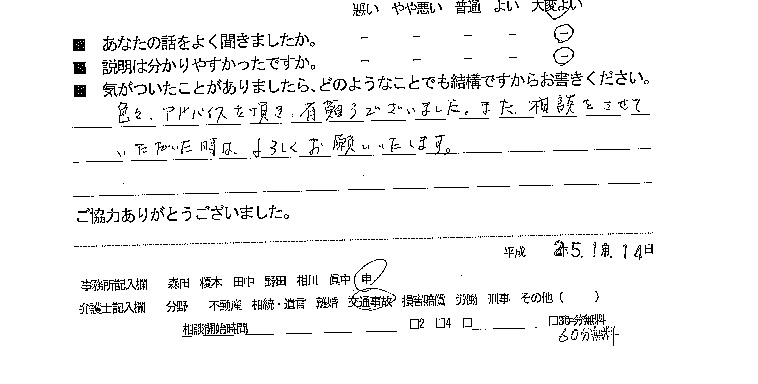 悪い やや悪い 普通 よい 大変よい
■ あなたの話をよく聞きましたか。 － － － － －
■ 説明は分かりやすかったですか。 － － － － －
■ 気がついたことがありましたら、どのようなことでも結構ですからお書きください。
色々、アドバイスを頂き、有難うございました。また、相談をさせて
いただいた時は、よろしくお願いいたします。
ご協力ありがとうございました。
平成 25.1月.14日
事務所記入欄 森田 榎本 田中 野田 相川 眞中 申
弁護士記入欄 分野 不動産 相続・遺言 離婚 交通事故 損害賠償 労働 刑事 その他（ ）
相談開始時間 □2 □4 □ □30分無料
60分無料